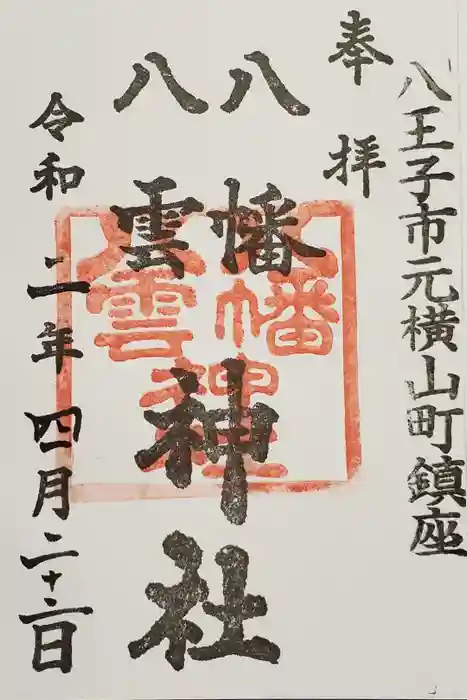 八王子市元横山町鎮座
奉拝
八幡
八雲
神社
令和二年四月二十二日